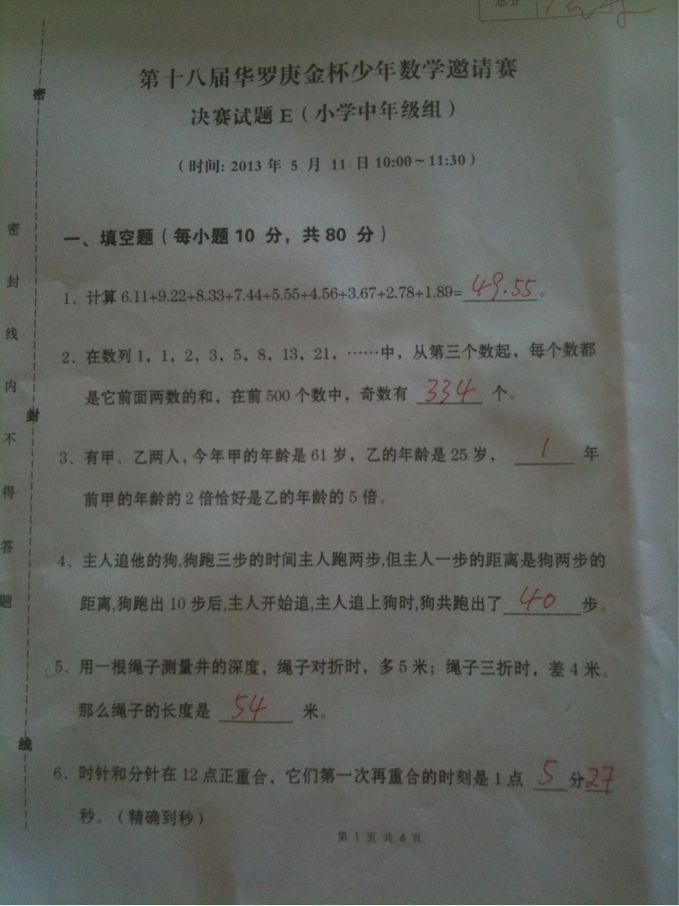 总分
第十八届华罗庚金杯少年数学邀请赛
决赛试题 E（小学中年级组）
（时间: 2013 年 5 月 11 日 10:00～11:30）
一、填空题（每小题 10 分，共 80 分）
1、计算 6.11+9.22+8.33+7.44+5.55+4.56+3.67+2.78+1.89= 49.55 。
2、在数列 1，1，2，3，5，8，13，21，……中，从第三个数起，每个数都
是它前面两数的和，在前 500 个数中，奇数有 334 个。
3、有甲、乙两人，今年甲的年龄是 61 岁，乙的年龄是 25 岁， 1 年
前甲的年龄的 2 倍恰好是乙的年龄的 5 倍。
4、主人追他的狗,狗跑三步的时间主人跑两步,但主人一步的距离是狗两步的
距离,狗跑出 10 步后,主人开始追,主人追上狗时,狗共跑出了 40 步。
5、用一根绳子测量井的深度，绳子对折时，多 5 米；绳子三折时，差 4 米。
那么绳子的长度是 54 米。
6、时针和分针在 12 点正重合，它们第一次再重合的时刻是 1 点 5 分 27
秒。（精确到秒）
第 1 页 共 4 页
密封线内不得答题
密
封
线